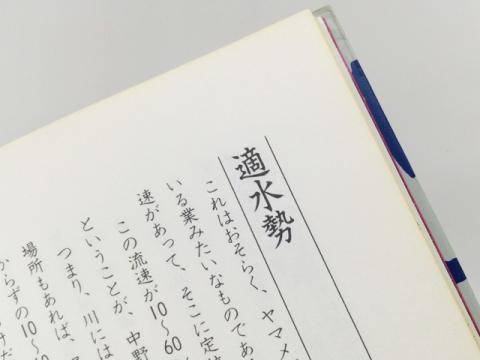 適水勢
これはおそらく、ヤマメ
いる業みたいなものであ
速があって、そこに定
この流速が10〜60
ということが、中野
つまり、川には
場所もあれば、
からずの10〜